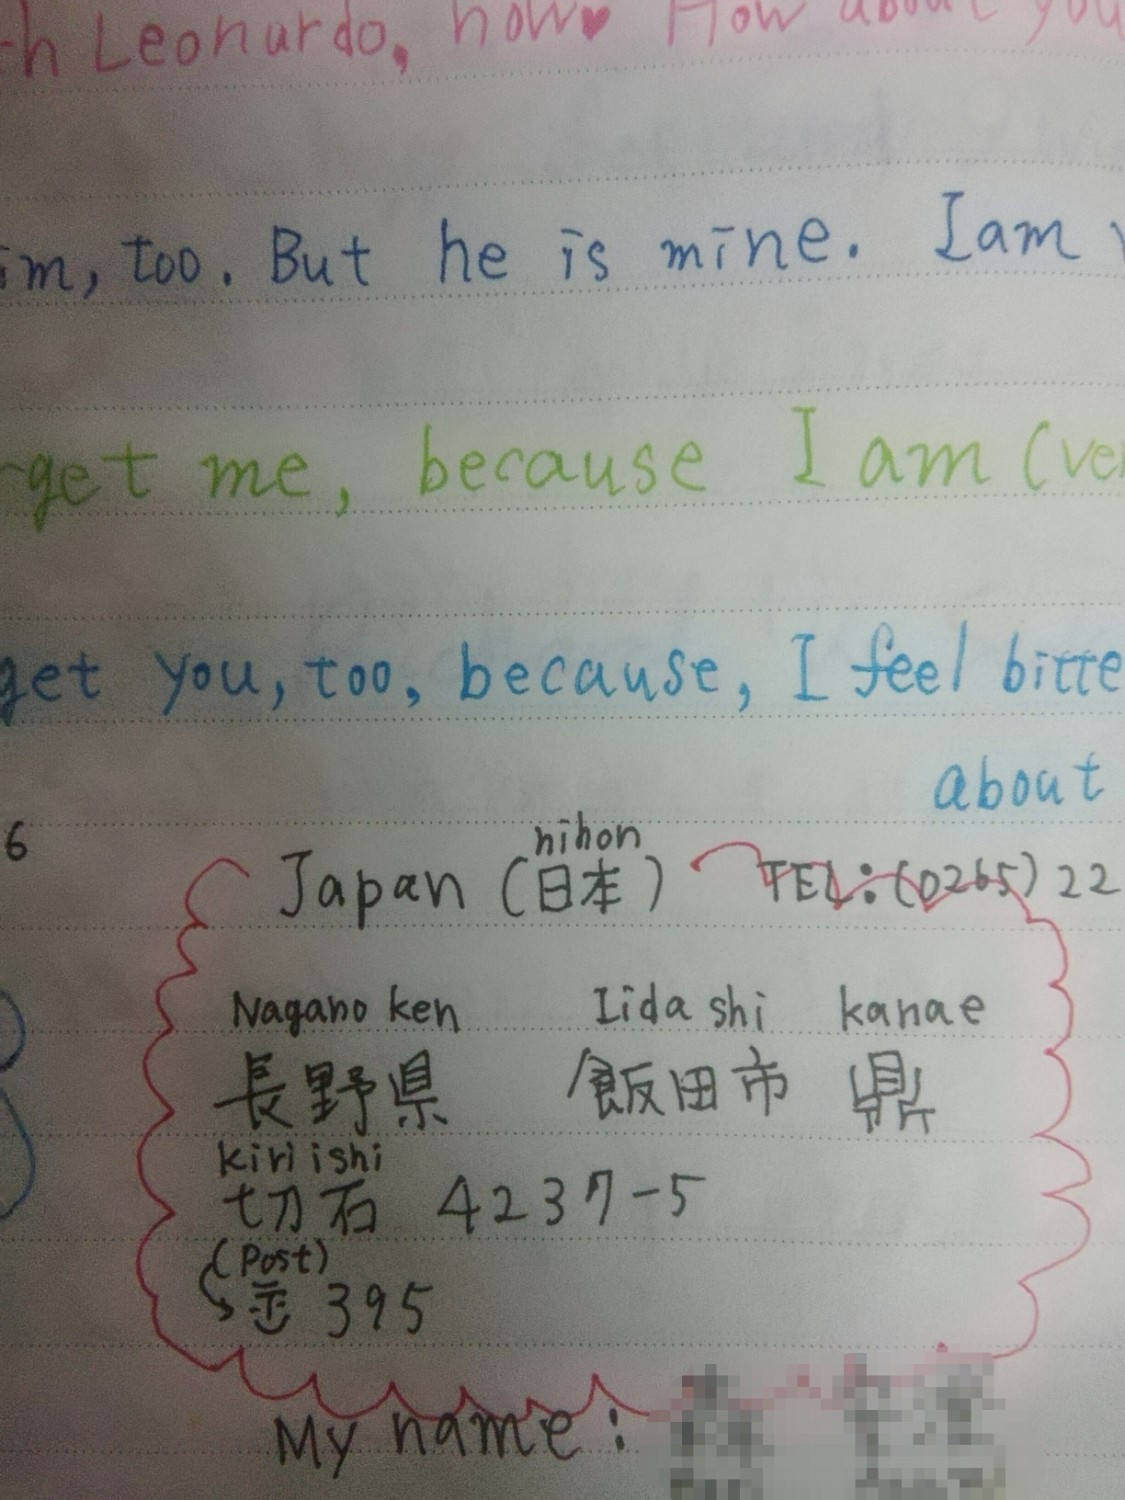 h Leonardo, now♥ How about you
im, too. But he is mine. I am
get me, because I am (ve
get you, too, because, I feel bitte
about
6
nihon
Japan (日本) TEL:(0265)22
Nagano ken Iida shi kanae
長野県 飯田市 鼎
kiri ishi
切石 4237-5
(Post)
〠 395
My name: